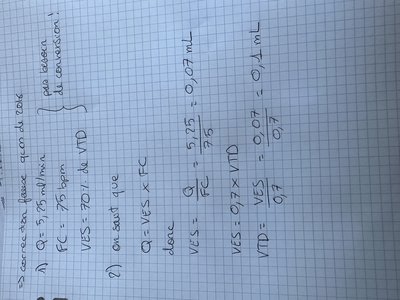 => correction fausse qcm de 2016
1) Q = 5,25 ml/min
FC = 75 bpm
VES = 70% de VTD
pas besoin
de conversion!
2) on sait que
Q = VES x FC
donc
VES = Q/FC = 5,25/75 = 0,07 mL
VES = 0,7 x VTD
VTD = VES/0,7 = 0,07/0,7 = 0,1 mL